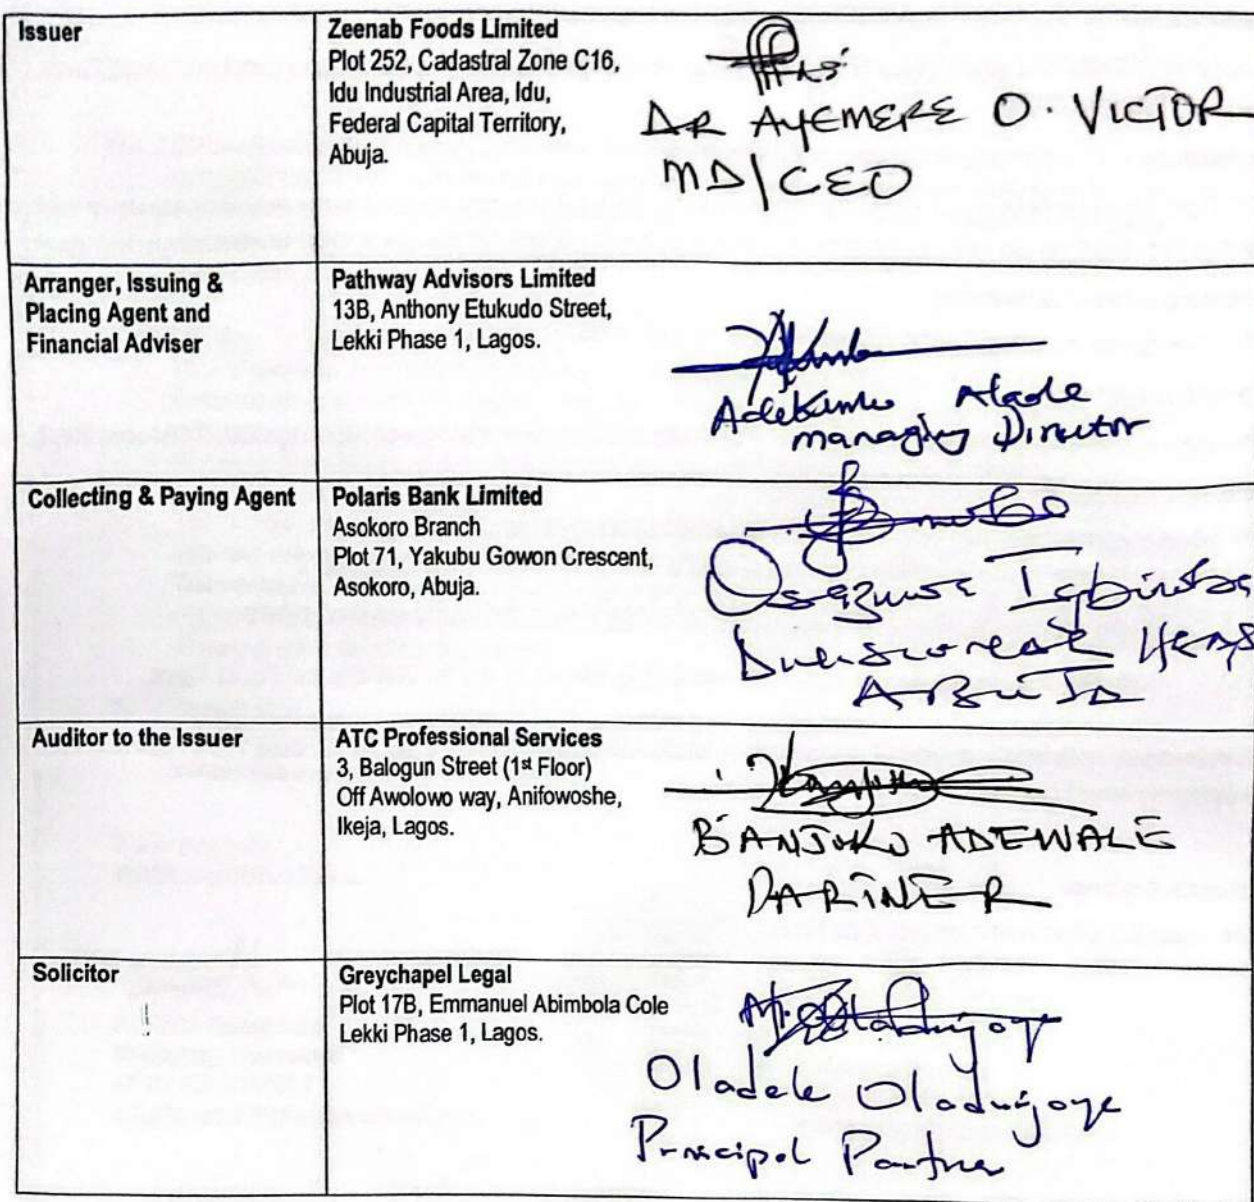 Issuer
Zeenab Foods Limited
Plot 252, Cadastral Zone C16,
Idu Industrial Area, Idu,
Federal Capital Territory,
Abuja.
DR AYEMERE O. VICTOR
MD/CEO
Arranger, Issuing &
Placing Agent and
Financial Adviser
Pathway Advisors Limited
13B, Anthony Etukudo Street,
Lekki Phase 1, Lagos.
Adekunle Alade
managing Director
Collecting & Paying Agent
Polaris Bank Limited
Asokoro Branch
Plot 71, Yakubu Gowon Crescent,
Asokoro, Abuja.
ABUJA
Auditor to the Issuer
ATC Professional Services
3, Balogun Street (1st Floor)
Off Awolowo way, Anifowoshe,
Ikeja, Lagos.
BANJOKO ADEWALE
PARTNER
Solicitor
Greychapel Legal
Plot 17B, Emmanuel Abimbola Cole
Lekki Phase 1, Lagos.
Oladele Oladunjoye
Principal Partner